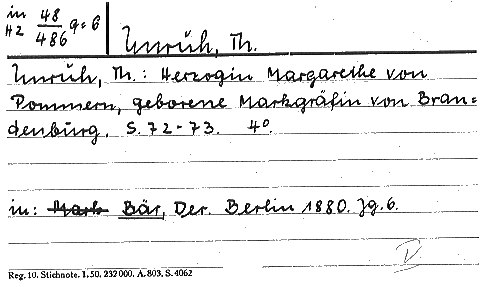 in 48
H2 486 q=6
Unruh, Th.
Unruh, Th.: Herzogin Margarethe von
Pommern, geborene Markgräfin von Bran=
denburg. S. 72-73. 4°.
in: Mark Bär, Der. Berlin 1880. Jg. 6.
Reg. 10. Stichnote. 1.50. 232000. A. 803. S. 4062